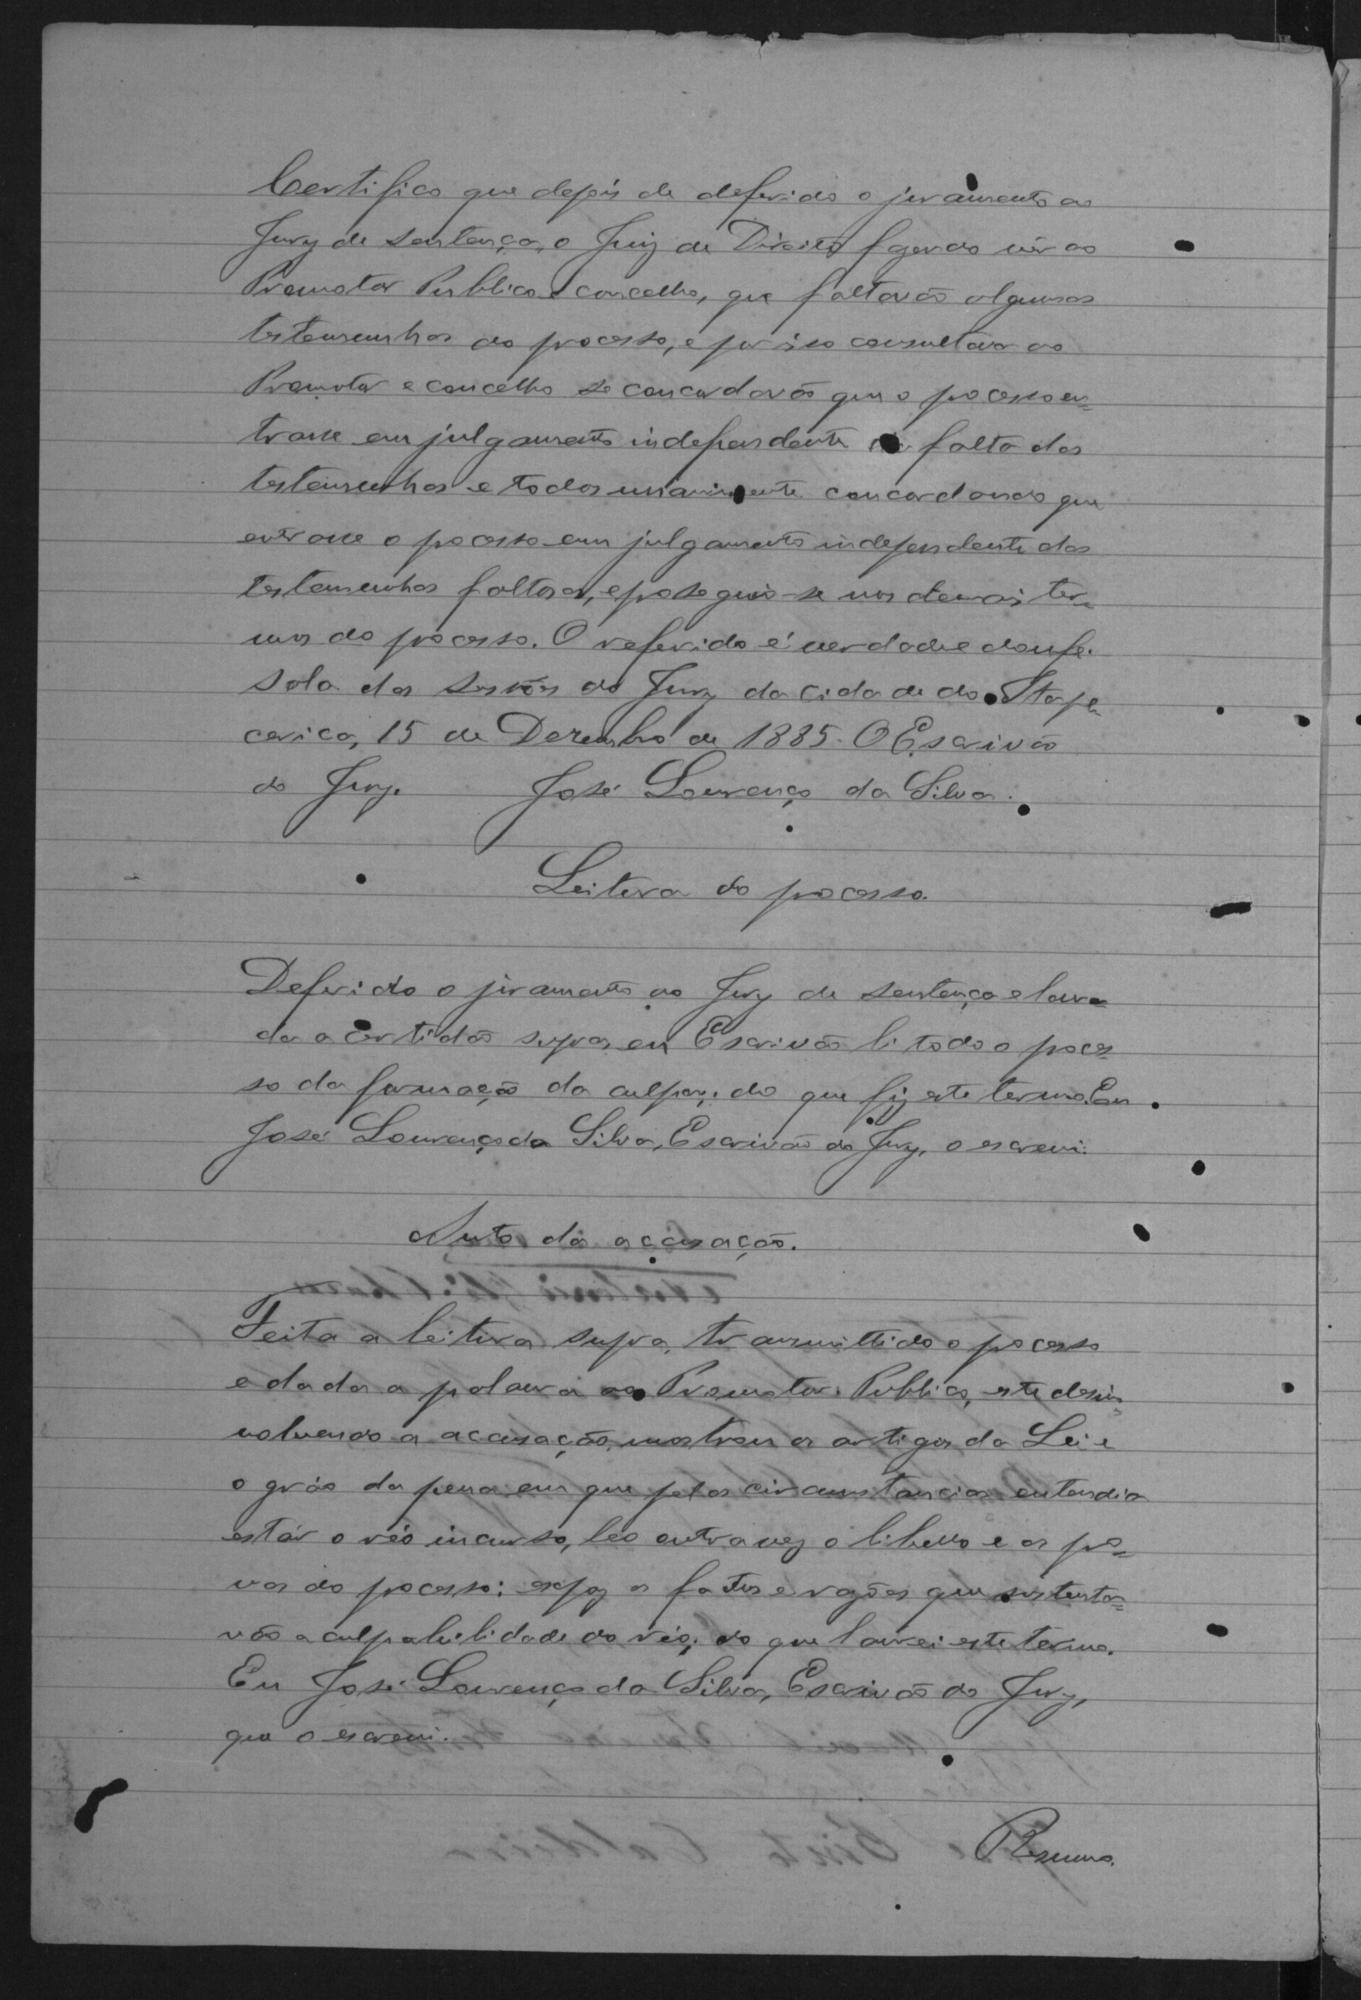 Certifico que depois de deferido o juramento ao
Jury de sentença, o Juiz de Direito fazendo vêr ao
Promotor Publico e concelho, que faltavão algumas
testemunhas do processo, e por isso consultava ao
Promotor e concelho se concordavão que o pocesso en=
trasse em julgamento independente da falta das
testemunhas e todos unanimemente concordando que
entrasse o pocesso em julgamento independente das
testemunhas faltosas, e poseguio-se nos demais ter=
mos do pocesso. O referido é verdade e dou fé.
Sala das Sessões do Jury da cidade do Itape
cerica, 15 de Dezembro de 1885. O Escrivão
do Jury. José Lourenço da Silva.
Leitura do pocesso.
Deferido o juramento ao Jury de sentença e lavra
da a certidão supra, eu Escrivão li todo o poces
so da formação da culpa; do que fiz este termo. Eu
José Lourenço da Silva, Escrivão do Jury, o escrevi.
Auto da accusação.
Feita a leitura supra, transmittido o pocesso
e dada a palavra ao Promotor Publico, este desin
volvendo a accusação, mostrou os artigos da Lei e
o gráo da pena em que pelas circumstancias entendia
estár o réo incurso, leo outra vez o libello e as pro=
vas do pocesso; expoz os factos e razões que sustenta=
vão a culpabilidade do réo; do que lavrei este termo.
Eu José Lourenço da Silva, Escrivão do Jury,
que o escrevi.
Resumo.